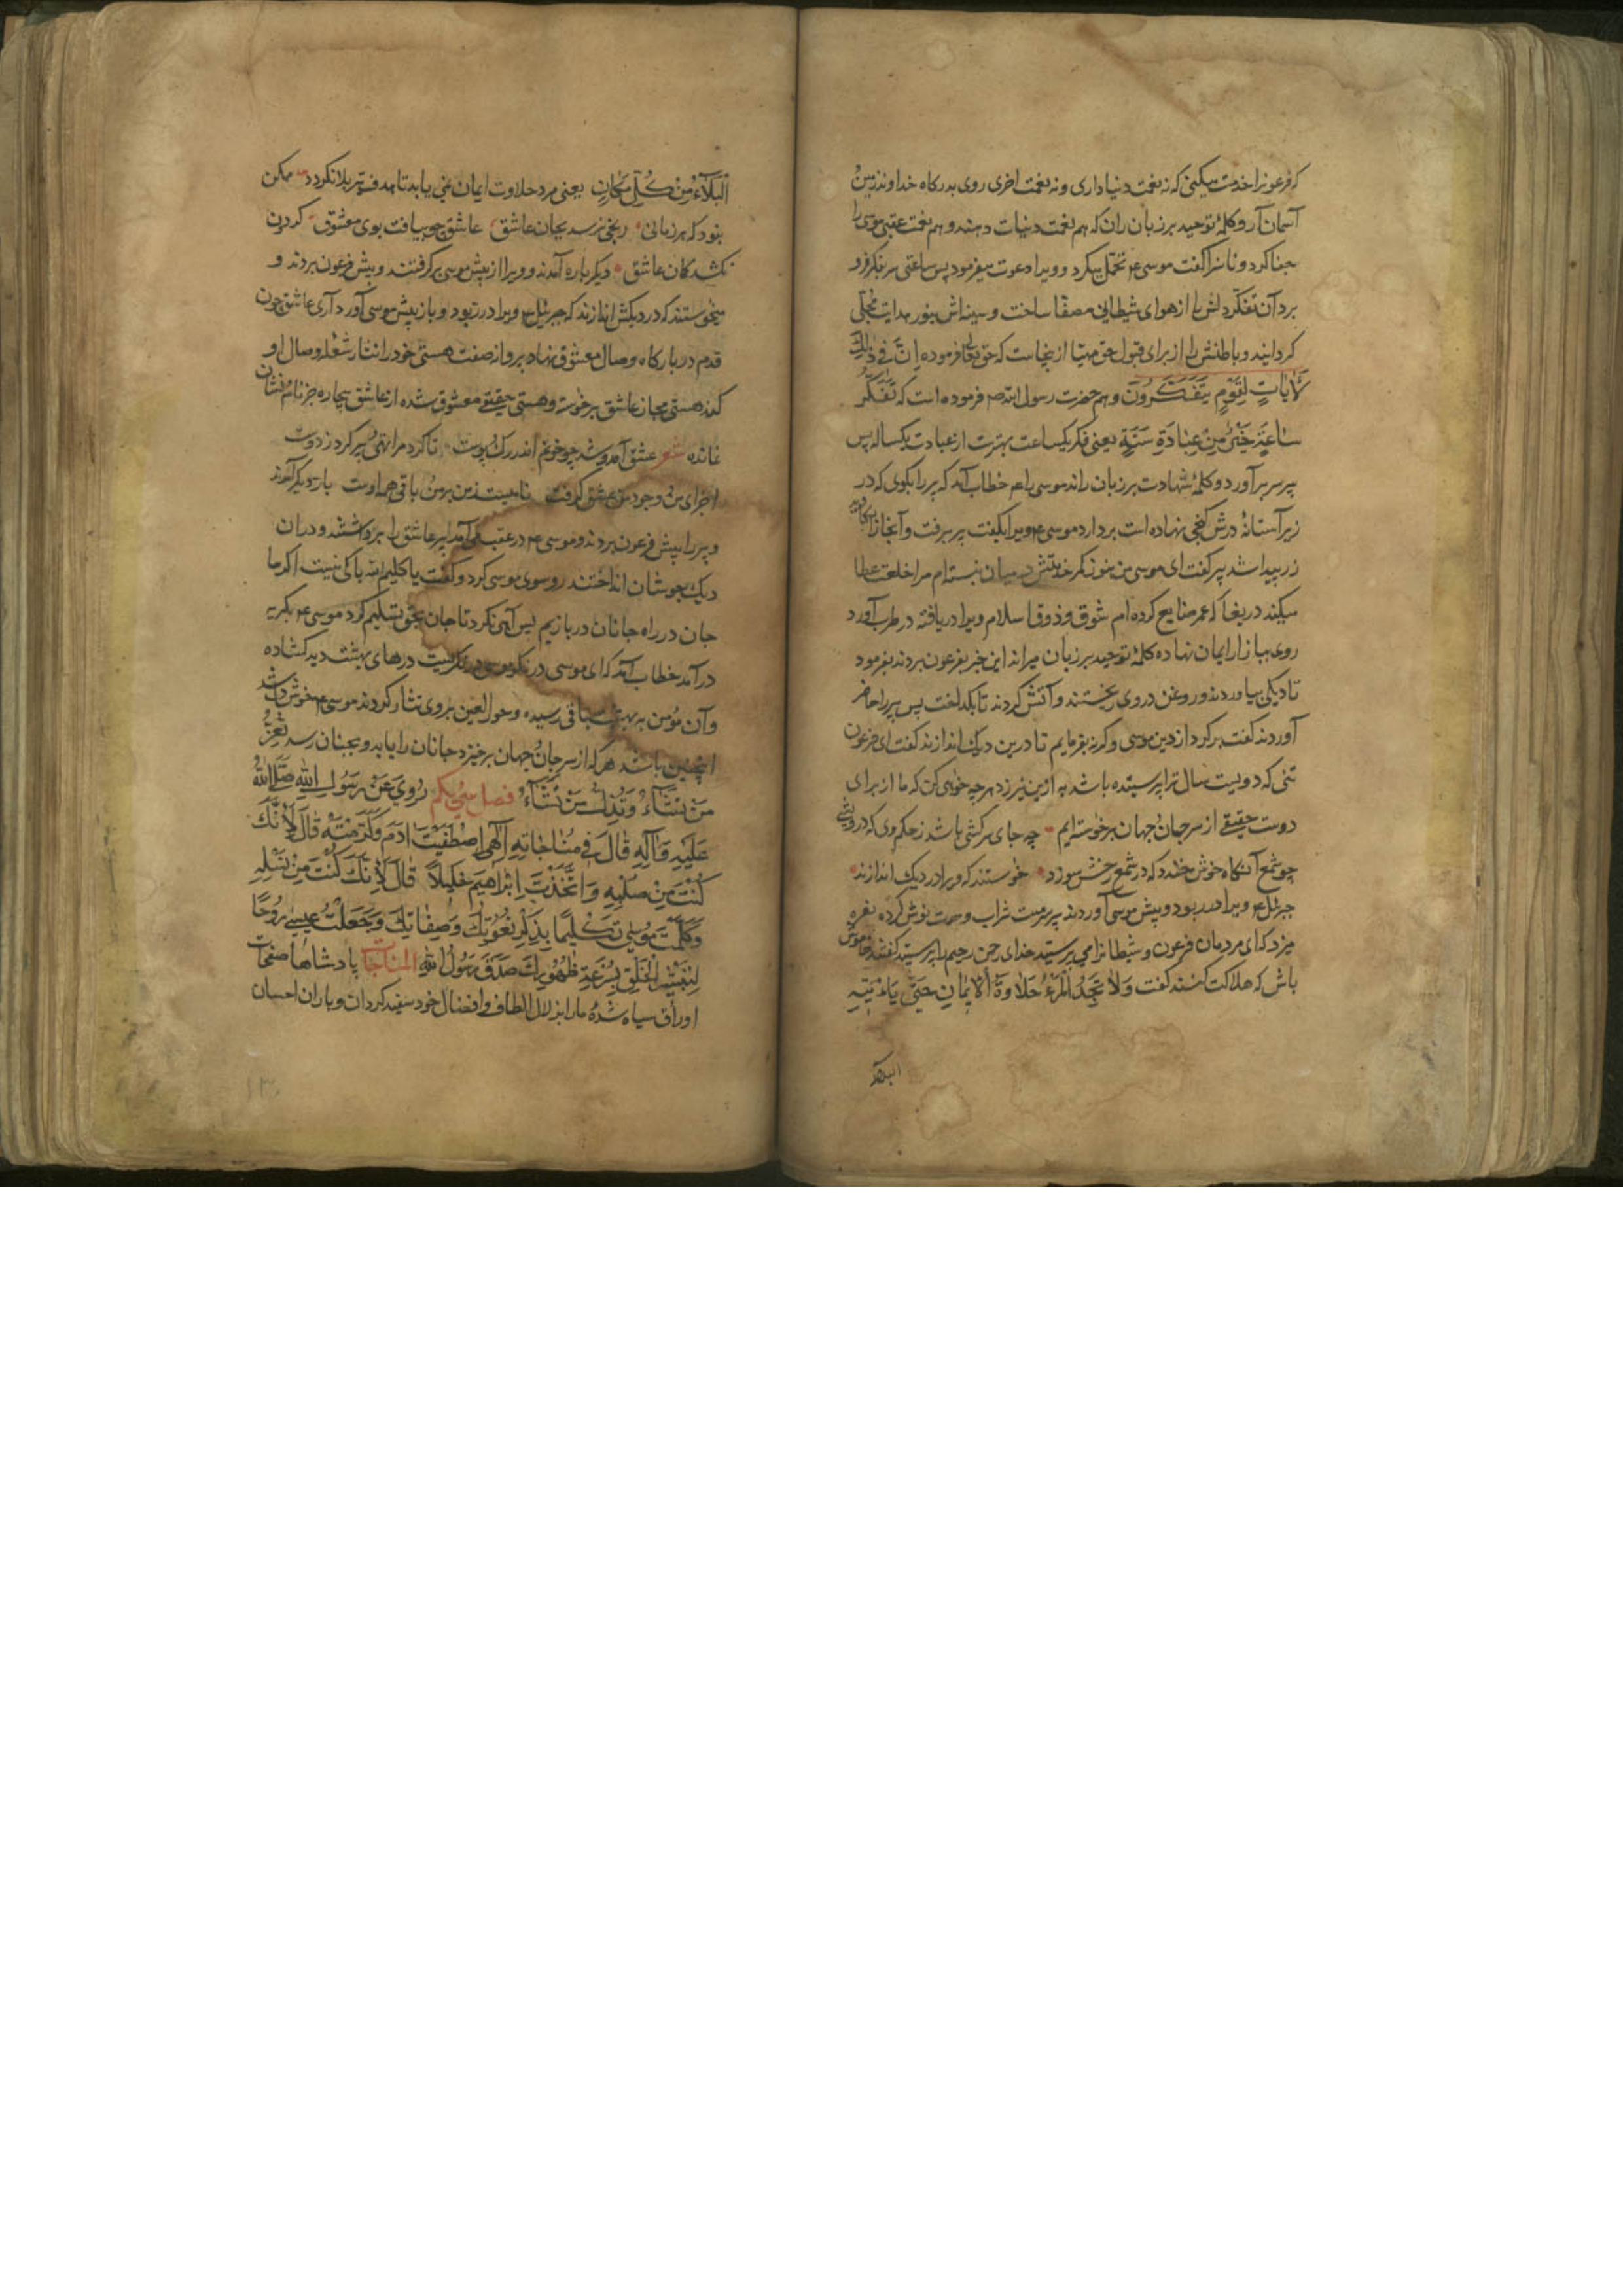 که فرعونرا خدمت میکنی که نه نعمت دنیا داری و نه نعمت اخری روی بدرکاه خداوند زمین
آسمان آر و کلمهٔ توحید بر زبان ران که هم نعمت دنیات دهند و هم نعمت عقبی موسی را
جفا کرد و ناسزا کفت موسی ع تحمل میکرد و ویرا دعوت میفرمود پس ساعتی سر بفکر فرو
برد آن تفکر دلش را از هوای شیطانی مصفّا ساخت و سینه اش بنور هدایت مُجلّی
کردانید و باطنش را از برای قبول حق مهیّا ازینجاست که حق تعالی فرموده اِنَّ فی ذٰلِكَ
لَاٰیاتٍ لِقَوْمٍ یَتَفَکَّرُونَ و هم حضرت رسول الله ص فرموده است که تَفَکُّرُ
سٰاعَةٍ خَیْرٌ مِنْ عِبٰادَةِ سَنَةٍ یعنی فکر یکساعت بهترست از عبادت یکساله پس
پیر سر برآورد و کلمهٔ شهادت بر زبان راند موسی را ع خطاب آمد که پیر را بکوی که در
زیر آستانهٔ درش کنجی نهاده است بردارد موسی ع ویرا بکفت پیر برفت و آنجا را
زر پیدا شد پیر کفت ای موسی من هنوز کمر خدمتش در میان نبسته ام مرا خلعت عطا
میکند دریغا که عمر ضایع کرده ام شوق و ذوق اسلام ویرا دریافته در طرب آورد
روی ببازار ایمان نهاده کلمهٔ توحید بر زبان میراند این خبر بفرعون بردند بفرمود
تا دیکی بیاوردند و روغن در وی ریختند و آتش کردند تا بکداخت پس پیر را حاضر
آوردند کفت برکرد از دین موسی وکرنه بفرمایم تا درین دیک اندازند کفت ای فرعون
تنی که دویست سال ترا پرستیده باشد به ازین نیرزد هر چه خواهی کن که ما از برای
دوست حقیقی از سر جان و جهان برخواسته ایم چه جای سرکشی باشد ز حکم وی که درویشی
چو شمع آنکاه خوش خندد که در شمع رخش سوزد خواستند که ویرا در دیک اندازند
جبرئل ع ویرا در ربود و پیش موسی آوردند پیر سرمست شراب وحدت نوش کرده نعره
میزد که ای مردمان فرعون و شیطانرا می پرستید خدای رحمن رحیم را پرستید کفتند خاموش
باش که هلاکت کنند کفت وَلاٰ تَجِدُ الْمَرْءُ حَلاٰوَةُ الْاٖیمٰانِ حَتّٰی یَاءْتِیَهِ
البلاء
اَلْبَلآءُ مِنْ کُلِّ مَکٰانٍ یعنی مرد حلاوت ایمان نمی یابد تا هدف تیر بلا نکردد ممکن
نبود که هر زمانی رنجی نرسد بجان عاشق عاشق چو بیافت بوی معشوق کردون
نکشد کمان عاشق دیکر باره آمدند و ویرا از پیش موسی برکرفتند و پیش فرعون بردند و
میخواستند که در دیکش اندازند که جبرئیل ع ویرا در ربود و باز پیش موسی آورد آری عاشق چون
قدم در بارکاه وصال معشوق نهاد پروانه صفت هستی خود را نثار شعلهٔ وصال او
کند هستی مجاز عاشق برخواسته و هستی حقیقی معشوق شده از عاشق بیچاره جز نام و نشان
نمانده شعر عشق آمد و شد چو خونم اندر رک و پوست تا کرد مرا تهی و پر کرد ز دوست
اجزای من وجود من عشق کرفت نامیست ز من بر من و باقی همه اوست بار دیکر آمدند
و پیر را پیش فرعون بردند و موسی ع در عقب می آمد پیر عاشق را برداشتند و در ان
دیک جوشان انداختند رو سوی موسی کرد و کفت یا کلیم الله باکی نیست اکر ما
جان در راه جانان دربازیم پس آهی نکرد تا جان بحق تسلیم کرد موسی ع بکریه
درآمد خطاب آمد که ای موسی درنکر موسی درنکریست درهای بهشت دید کشاده
و آن مؤمن به بهشت باقی رسیده و حور العین بر وی نثار کردند موسی ع خوش دل شد
اینچنین باشد هر که از سر جان و جهان برخیزد جانان را یابد و بجنان رسد تُعِزُّ
مَنْ تَشٰاءُ وَ تُذِلُّ مَنْ تَشٰاءُ فصل سی یکم رُوِیَ عَنْ رَسُولِ اللهِ صَلَّی اللهُ
عَلَیْهِ وَ اٰلِهِ قٰالَ فی مُنٰاجٰاتِهِ اِلٰهی اِصْطَفَیْتَ اٰدَمَ وَ کَرَّمْتَهُ قٰالَ لِاَنَّكَ
کُنْتَ مِنْ صُلْبِهِ وَ اتَّخَذْتَ اِبْرٰاهیمَ خَلیلاً قٰالَ لِاَنَّكَ کُنْتَ مِنْ نَسْلِهِ
وَ کَلَّمْتَ مُوسٰی تَکْلیمًا بِذِکْرِ نُعُوتِكَ وَ صِفٰاتِكَ وَ جَعَلْتُ عیسٰی رُوحًا
لِتَبْشیرِ الْخَلْقِ بِسُرْعَةِ ظُهُورِكَ صَدَقَ رَسُولُ اللهِ المناجات پادشاها صفحات
اوراق سیاه شدهٔ ما را بزلال الطاف و افضال خود سفید کردان و باران احسان